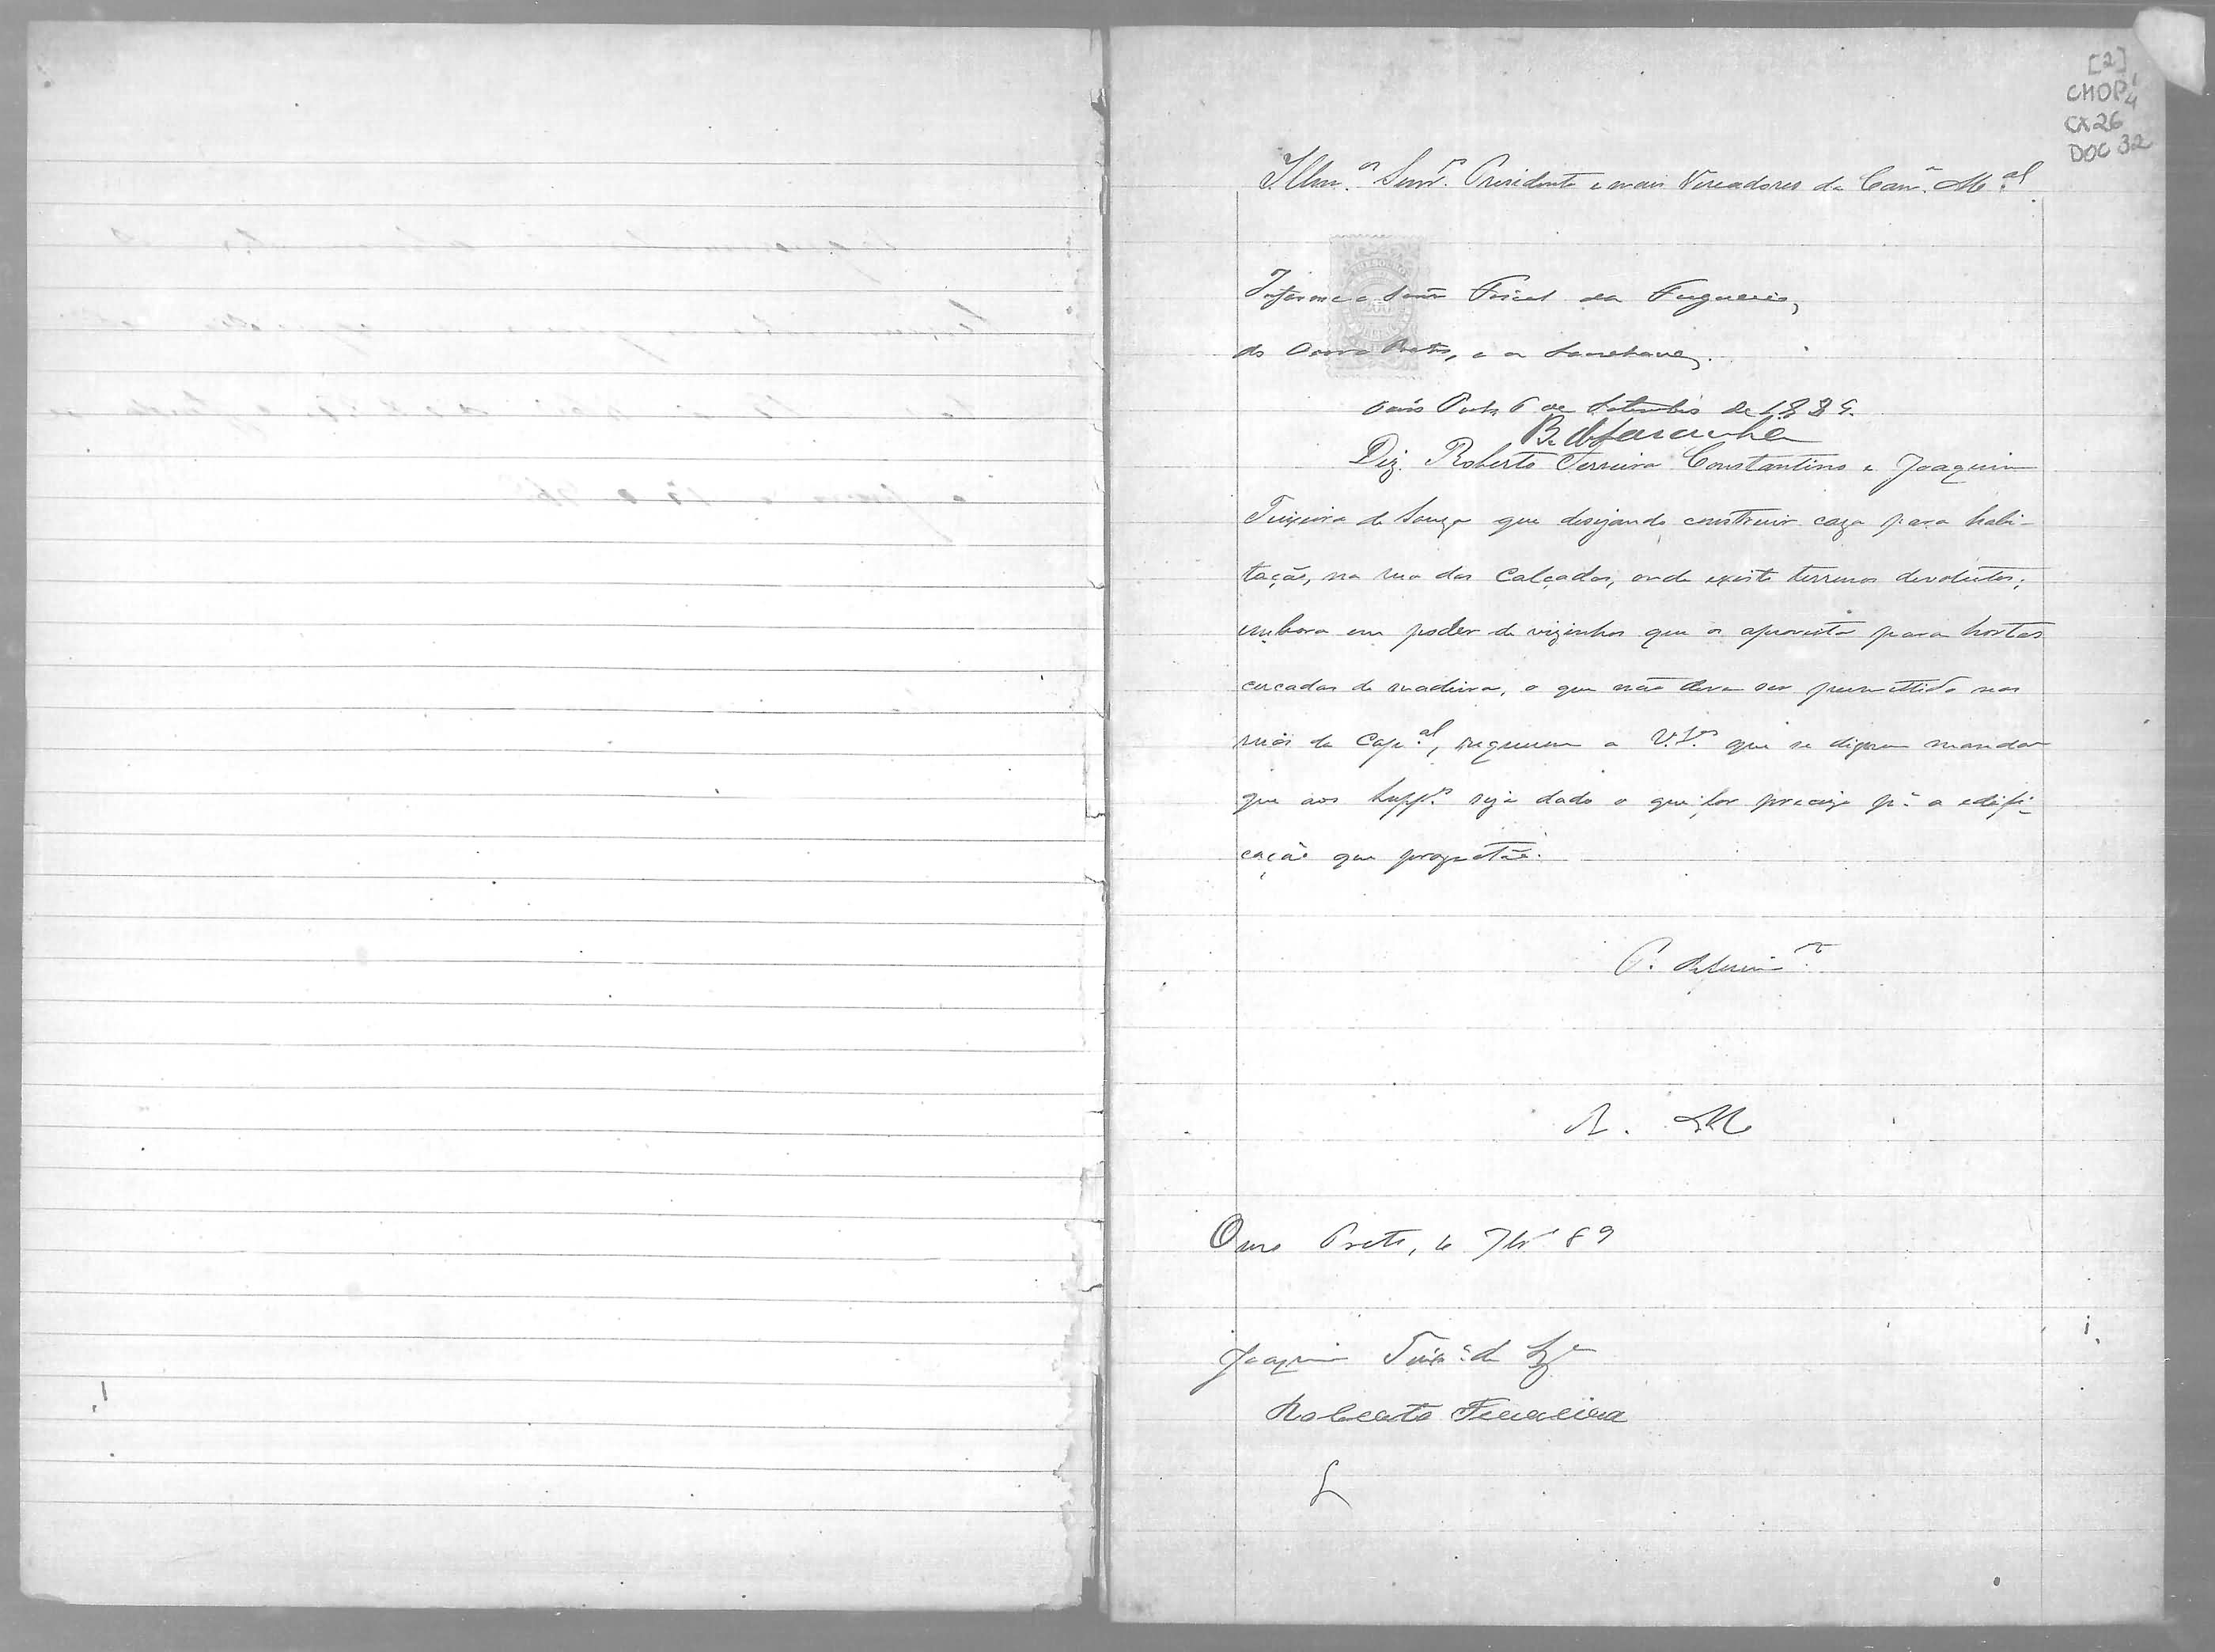 [2]
CMOP
CX 26
DOC 32
Illm.os Senr.s Presidente e mais Vereadores da Cam.a M.al
Informe o Senr Fiscal da Freguezia,
do Ouro Preto, e o
Ouro Preto 6 de Setembro de 1889.
Diz Roberto Ferreira Constantino e Joaquim
Teixeira de Souza que desejando construir caza para habi-
tação, na rua das Calçadas, onde existe terrenos devolutos,
embora em poder de vizinhos que os aproveita para hortas
cercadas de madeira, o que não deve ser permettido nas
ruas da Cap.al, requerem a V.S.as que se dignem mandar
que aos Supp.es seja dado o que for precizo p.a a edifi-
cação que projectão.
P. Deferim.to
E. R. M.
Ouro Preto, 6 7br 89
Joaquim Teix.a de Sz.a
Roberto Ferreira